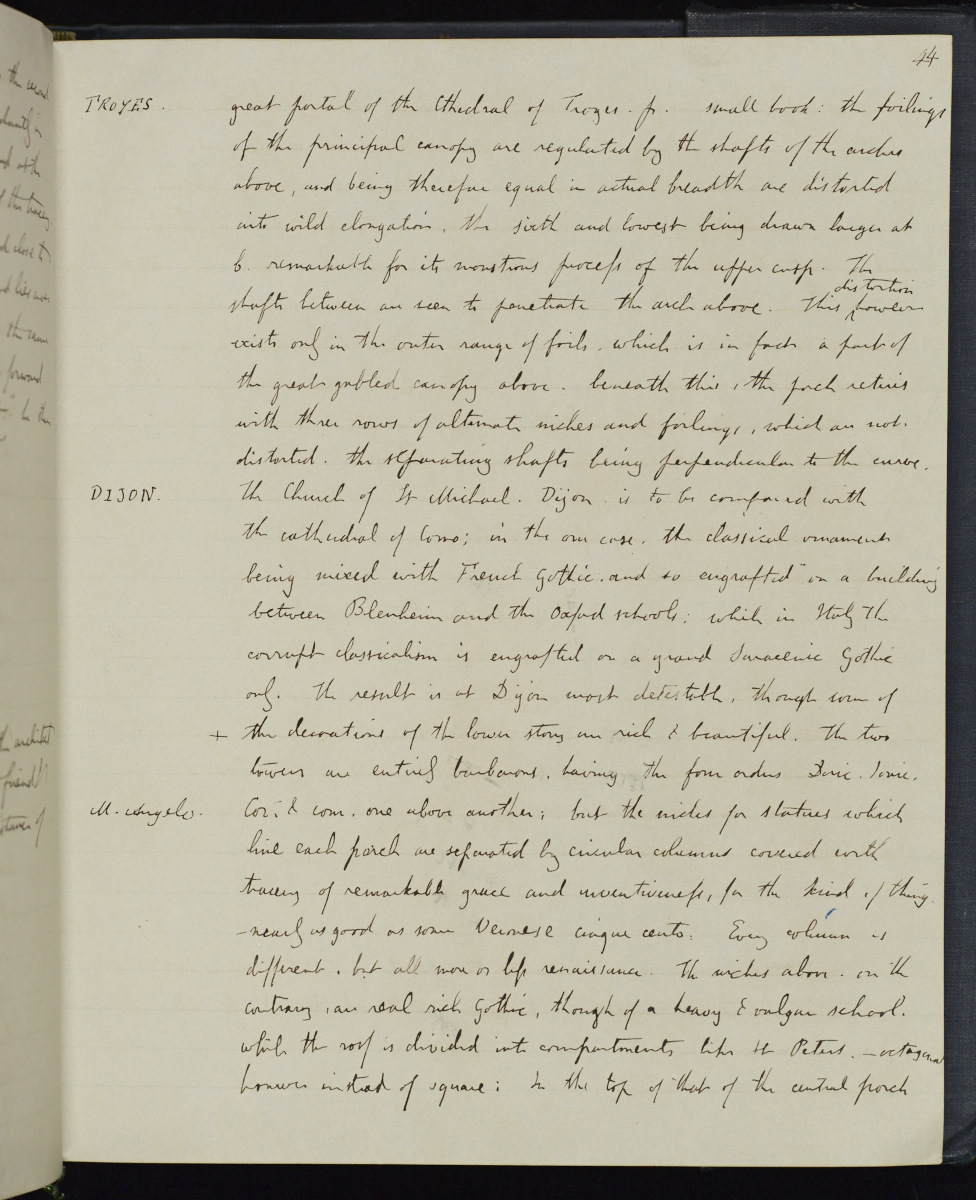 44
TROYES. great portal of the Cthedral of Troyes. fr. small book: the foilings
of the principal canopy are regulated by the shafts of the arches
above, and being therefore equal in actual breadth are distorted
into wild elongation, the sixth and lowest being drawn larger at
b. remarkable for its monstrous process of the upper cusp. The
distortion
shafts between are seen to penetrate the arch above. This however
exists only in the outer range of foils, which is in fact a part of
the great gabled canopy above. beneath this, the porch retires
with three rows of alternate niches and foilings, which are not.
distorted. the separating shafts being perpendicular to the curve.
DIJON. The Church of St Michael. Dijon is to be compared with
the cathedral of Como; in the one case. the classical ornaments
being mixed with French Gothic. and so engrafted on a building
between Blenheim and the Oxford schools; while in Italy the
corrupt classicalism is engrafted on a grand Saracenic Gothic
only. The result is at Dijon most detestable, though some of
+ the decorations of the lower story are rich & beautiful. The two
towers are entirely barbarous. having the four orders Doric. Ionic.
M. Angelo. Cor: & com. one above another; but the niches for statues which
line each porch are separated by circular columns covered with
tracery of remarkable grace and inventiveness, for the kind of thing.
-nearly as good as some Veronese cinque cento. Every column is
different. but all more or less renaissance. The niches above. on the
contrary, are real rich Gothic, though of a heavy & vulgar school.
while the roof is divided into compartments like St Peters. - octagonal
however instead of square: In the top of that of the central porch